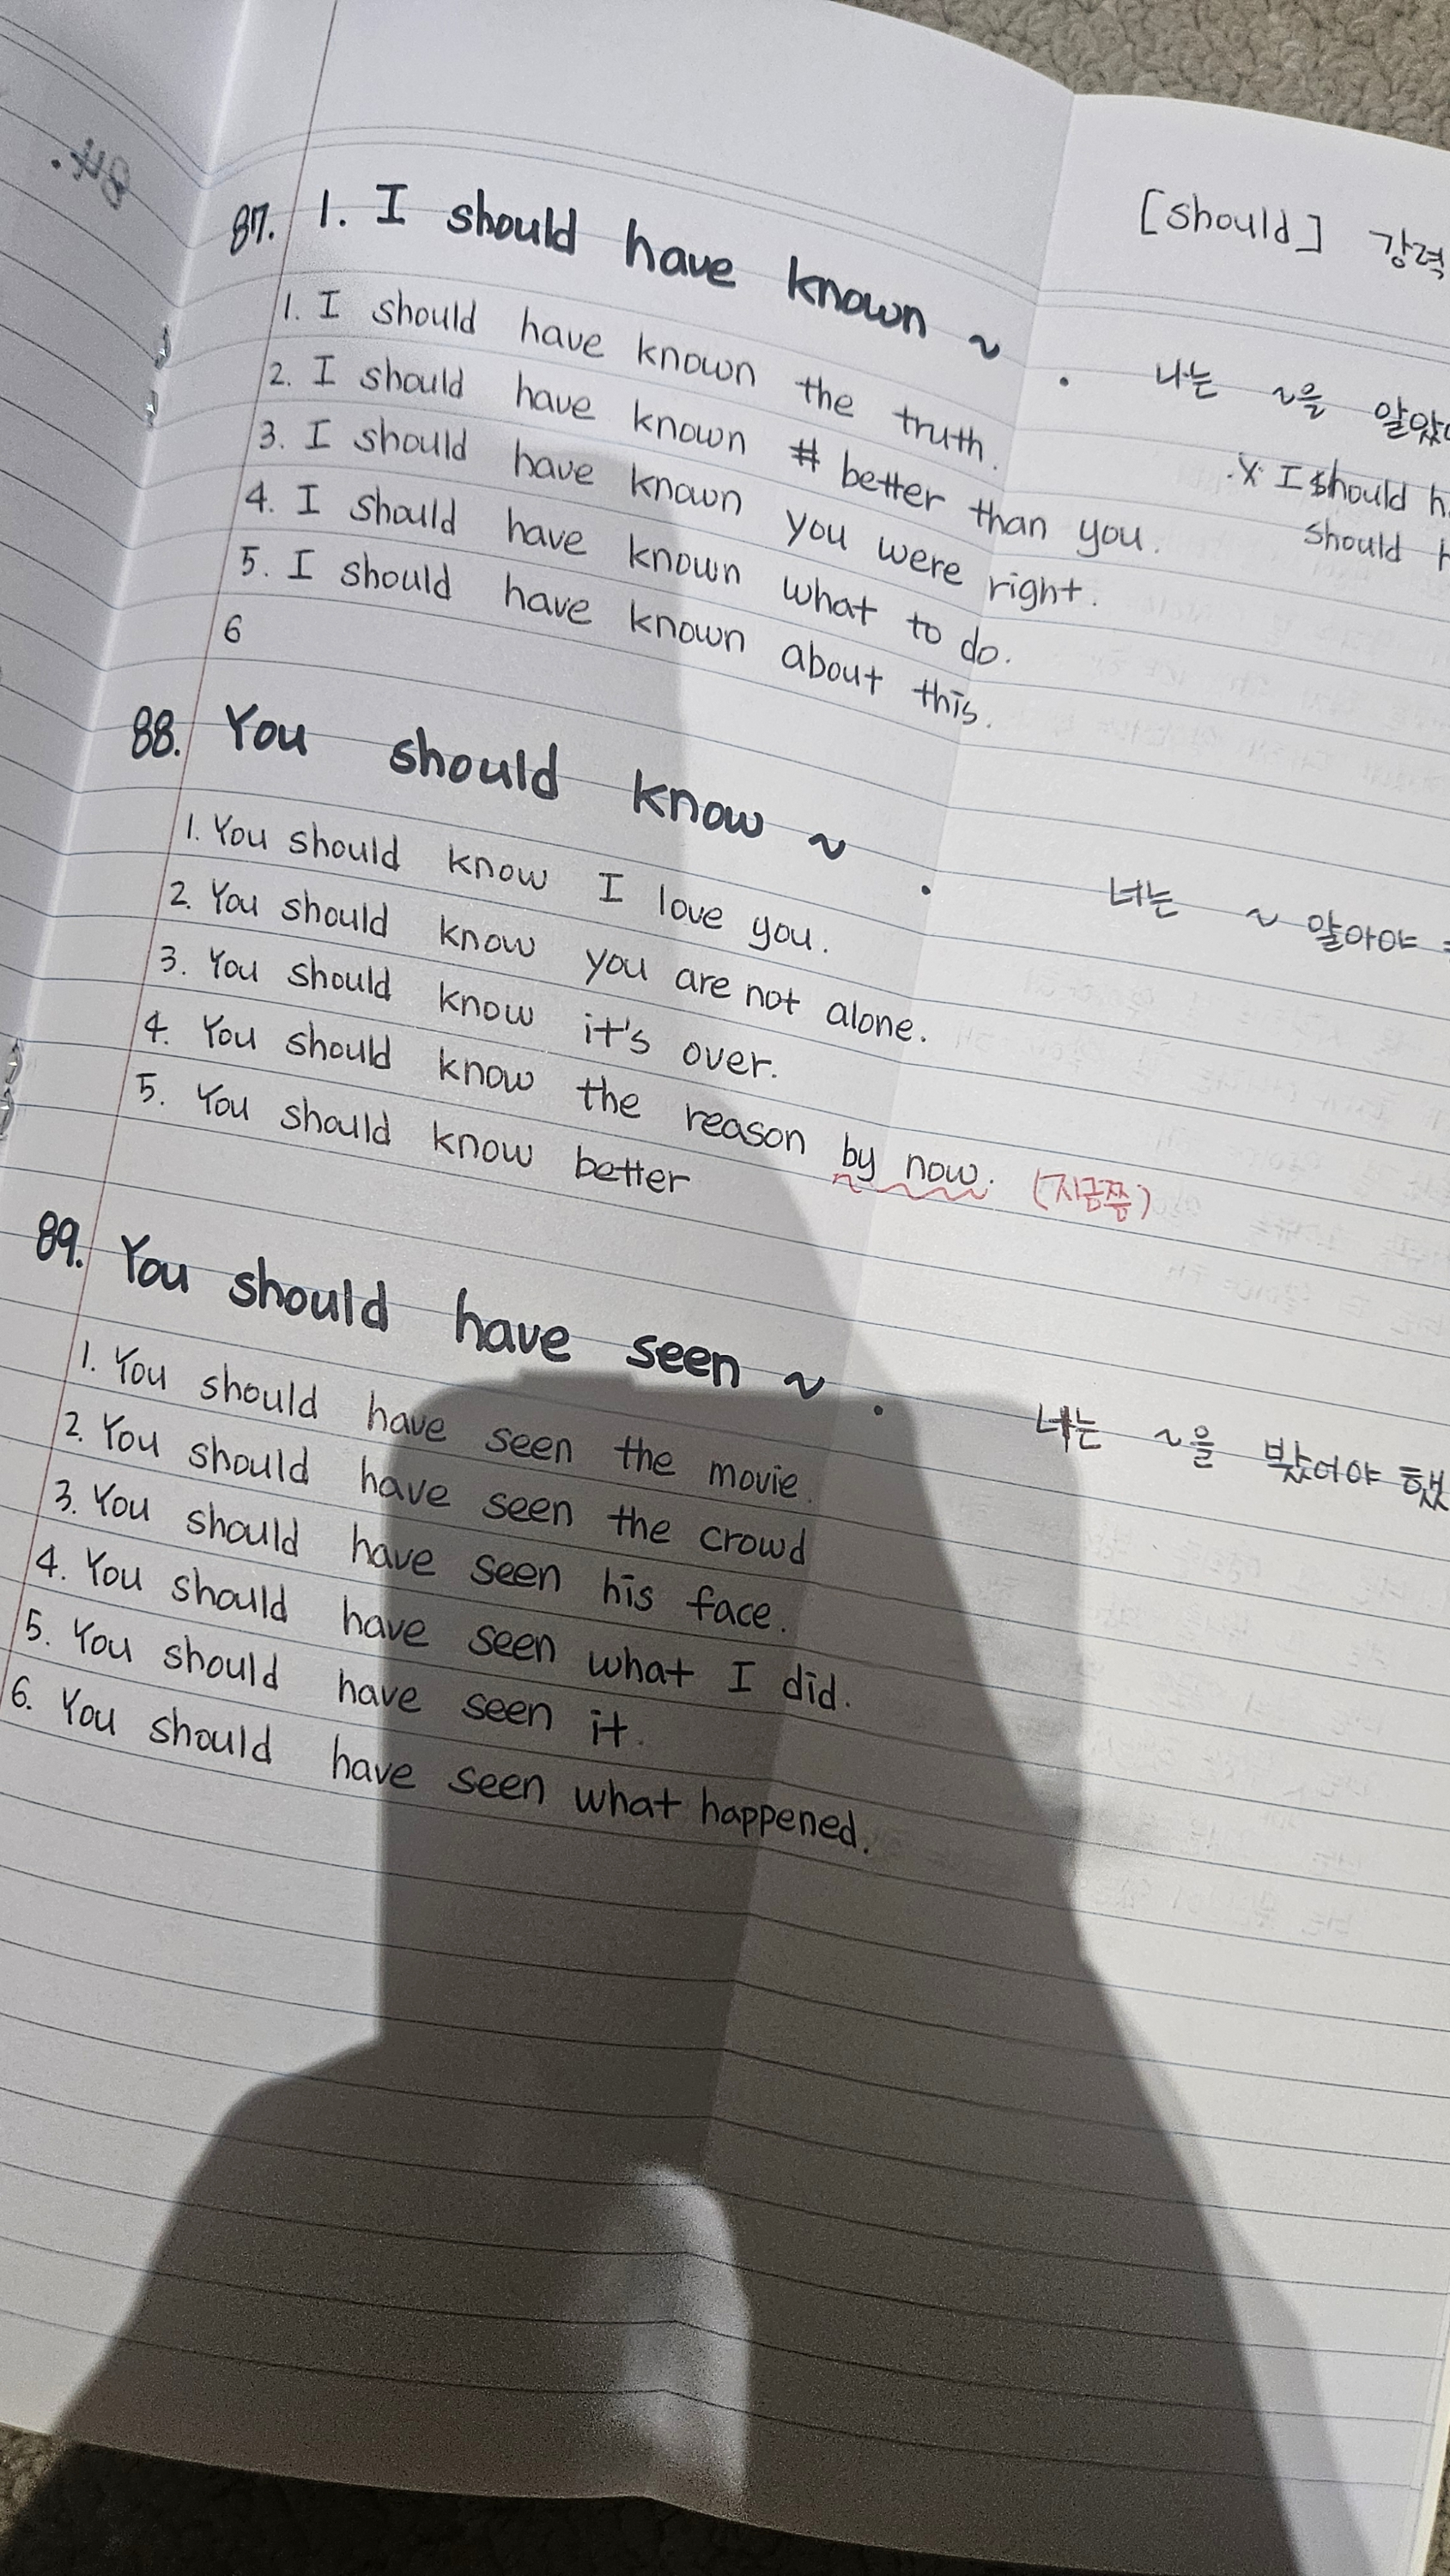 87. 1. I should have known ~ .
1. I should have known the truth.
2. I should have known # better than you.
3. I should have known you were right.
4. I should have known what to do.
5. I should have known about this.
6
88. You should know ~ .
1. You should know I love you.
2. You should know you are not alone.
3. You should know it's over.
4. You should know the reason by now. (지금쯤)
5. You should know better
89. You should have seen ~ .
1. You should have seen the movie.
2. You should have seen the crowd
3. You should have seen his face.
4. You should have seen what I did.
5. You should have seen it.
6. You should have seen what happened.
[should] 강력
나는 ~을 알았
X I should h
should h
너는 ~ 알아야
너는 ~을 봤어야 했